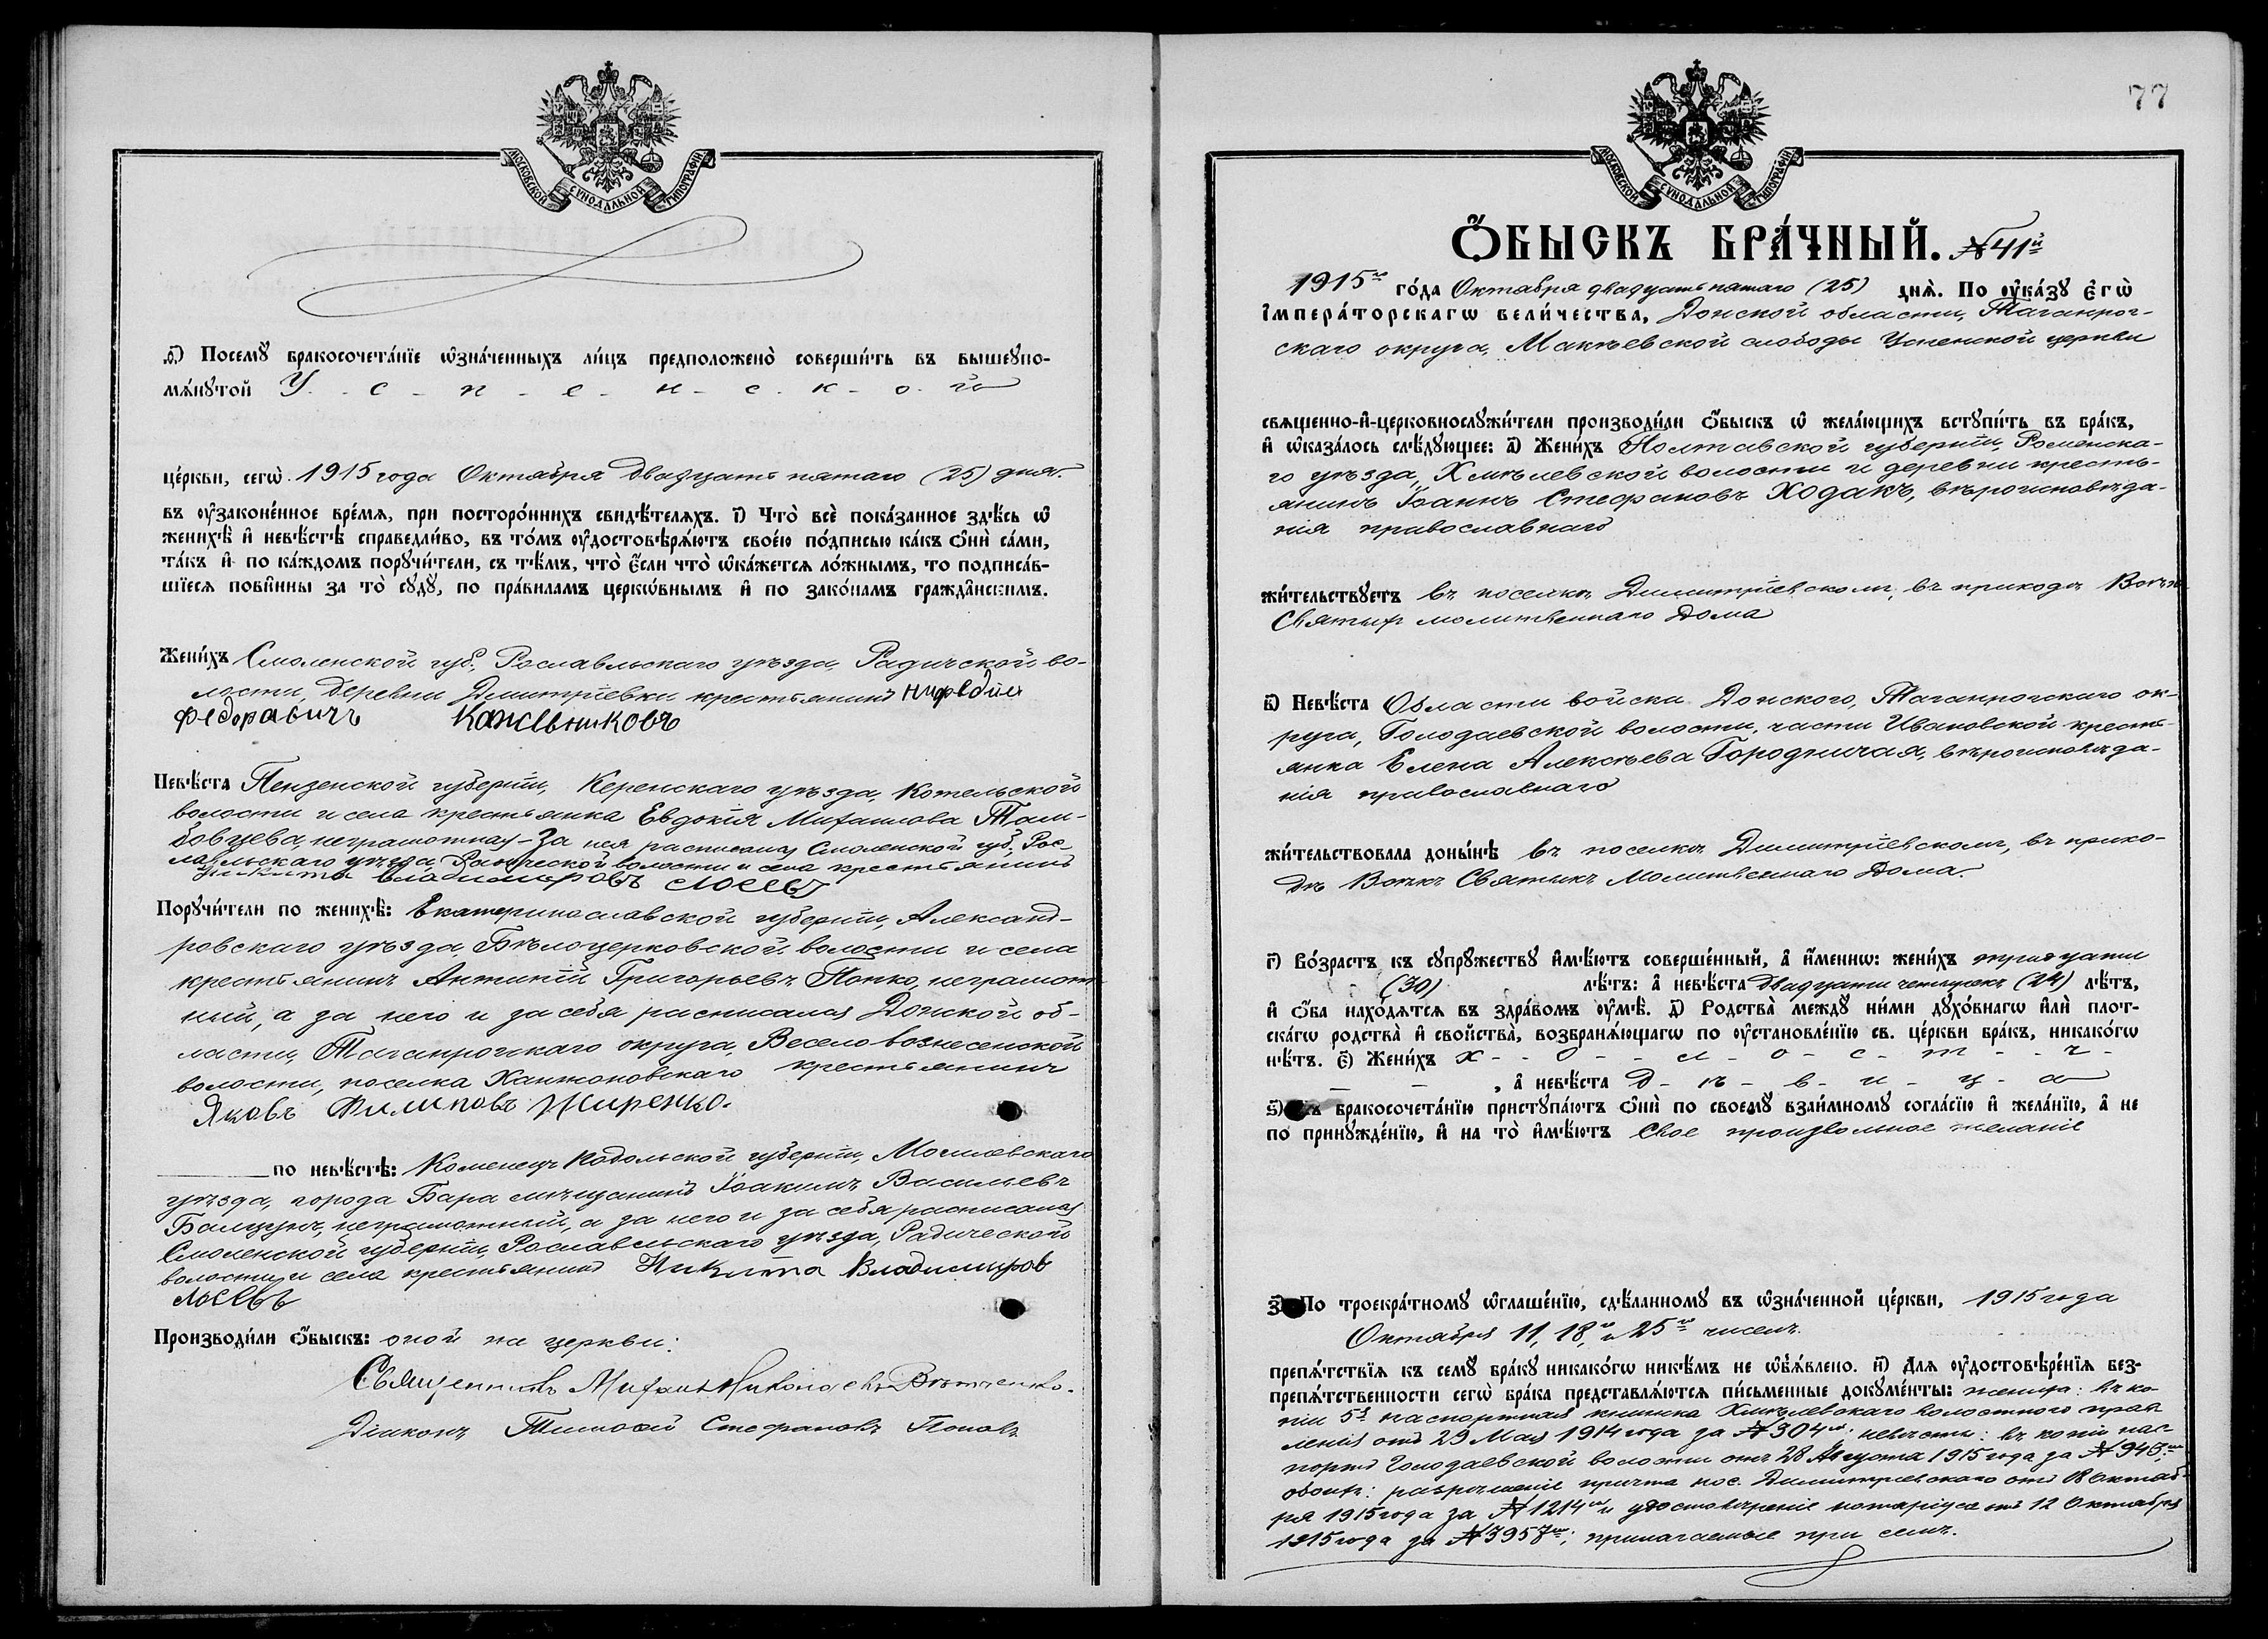 МОСКОВСКОЙ СУНОДАЛЬНОЙ ТИПОГРАФІИ
ѳ҃) Посемꙋ бракосочета́нїе ѡ҆зна́ченныхъ ли́цъ предположено̀ соверши́ть въ вышеꙋпо-
мѧ́нꙋтой У - с - п - е - н - с - к - о - й
це́ркви, сегѡ̀ 1915 года Октября двадцать пятаго (25) дня
въ ᲂу҆законе́нное вре́мѧ, при посторо́ннихъ свидѣ́телѧхъ. і҃) Что̀ всѐ пока́занное здѣ́сь ѡ҆
женихѣ̀ и҆ невѣ́стѣ справедли́во, въ то́мъ ᲂу҆достовѣрѧ́ютъ свое́ю по́дписью ка́къ ѻ҆нѝ са́ми,
та́къ и҆ по ка́ждомъ порꙋчи́тели, съ тѣ́мъ, что̀ є҆́сли что̀ ѡ҆ка́жетсѧ ло́жнымъ, то подписа́в-
шїесѧ пови́нны за то̀ сꙋдꙋ̀, по пра́виламъ церкѡ́внымъ и҆ по зако́намъ гражда́нскимъ.
Жени́хъ Смоленской губ., Рославльскаго уѣзда, Радичской во-
лости, деревни Димитріевки крестьянинъ
Федоравичъ
Невѣ́ста Пензенской губерніи, Керенскаго уѣзда, Котельской
волости и села крестьянка Евдокія Михаилова Там-
бовцева, неграмотная - За нея расписался Смоленской губ. Рос-
лавльскаго уѣзда, Радической волости и села крестьянинъ
Никита Владимировъ Лосевъ
Порꙋчи́тели по женихѣ̀: Екатеринославской губерніи, Александ-
ровскаго уѣзда, Бѣлоцерковской волости и села
крестьянинъ Антипій Григорьевъ Попко, неграмот-
ный, а за него и за себя расписался Донской об-
ласти, Таганрогскаго округа, Весело вознесенской
волости, поселка Ханжоновскаго крестьянинъ
Яковъ Филиповъ Жиренко.
по невѣ́стѣ: Каменецъ Подольской губерніи, Могилевскаго
уѣзда, города Бара мѣщанинъ Іоакимъ Васильевъ
неграмотный, а за него и за себя расписался
Смоленской губерніи, Рославльскаго уѣзда, Радической
волости и села крестьянинъ Никита Владимиров
Лосевъ
Производи́ли ѻ҆́быскъ: оной же церкви:
Священникъ Михаилъ Николаевъ
Діаконъ Тимофей Стефановъ Поповъ
77
МОСКОВСКОЙ СУНОДАЛЬНОЙ ТИПОГРАФІИ
Ѻ҆́БЫСКЪ БРА́ЧНЫЙ. № 41й
1915го го́да Октября двадцать пятаго (25) днѧ̀. По ᲂу҆ка́зꙋ є҆гѡ̀
і҆мпера́торскагѡ вели́чества, Донской области, Таганрог-
скаго округа, Макѣевской слободы Успенской церкви
свѧщенно-и҆-церковнослꙋжи́тели производи́ли ѻ҆́быскъ ѡ҆ жела́ющихъ встꙋпи́ть въ бра́къ,
и҆ ѡ҆каза́лось слѣ́дꙋющее: а҃) Жени́хъ Полтавской губерніи, Роменска-
го уѣзда, Хмѣлевской волости и деревни кресть-
янинъ Іоаннъ Стефановъ Ходакъ, вѣроисповѣда-
нія православнаго
жи́тельствꙋетъ въ поселкѣ Димитріевскомъ, въ приходѣ Всѣхъ
Святыхъ молитвеннаго Дома
в҃) Невѣ́ста Области войска Донского, Таганрогскаго ок-
руга, Голодаевской волости, части Ивановской кресть-
янка Елена Алексѣева Городничая, вѣроисповѣда-
нія православнаго
жи́тельствовала доны́нѣ въ поселкѣ Димитріевскомъ, въ прихо-
дѣ Всѣхъ Святыхъ Молитвеннаго Дома.
г҃) Во́зрастъ къ сꙋпрꙋжествꙋ и҆мѣ́ютъ соверше́нный, а҆ и҆́меннѡ: жени́хъ тридцати
(30) лѣ́тъ: а҆ невѣ́ста двадцати четырехъ (24) лѣ́тъ,
и҆ ѻ҆́ба нахо́дѧтсѧ въ здра́вомъ ᲂу҆мѣ̀. д҃) Родства̀ междꙋ̀ ни́ми дꙋхо́внагѡ и҆лѝ плот-
ска́гѡ родства̀ и҆ свойства̀, возбранѧ́ющагѡ по ᲂу҆становле́нїю св. це́ркви бра́къ, никако́гѡ
нѣ́тъ. є҃) Жени́хъ х - о - л - о - с - т - ъ -
, а҆ невѣ́ста д - ѣ - в - и - ц - а
ѕ҃) Къ бракосочета́нїю пристꙋпа́ютъ ѻ҆нѝ по своемꙋ̀ взаи́мномꙋ согла́сїю и҆ жела́нїю, а҆ не
по принꙋжде́нїю, и҆ на то̀ и҆мѣ́ютъ свое произвольное желаніе
з҃) По троекра́тномꙋ ѡ҆глаше́нїю, сдѣ́ланномꙋ въ ѡ҆зна́ченной це́ркви, 1915 года
Октября 11, 18го и 25го чиселъ.
препѧ́тствїѧ къ семꙋ̀ бра́кꙋ никако́гѡ никѣ́мъ не ѡ҆б̾ѧ́влено. и҃) Длѧ ᲂу҆достовѣре́нїѧ без-
препѧ́тственности сегѡ̀ бра́ка представлѧ́ютсѧ пи́сьменные докꙋме́нты: жениха: въ ко-
піи паспортная книжка Хмѣлевскаго волостного прав-
ленія отъ 29 Мая 1914 года за № 304мъ; невѣсты: въ копіи пас-
портъ Голодаевской волости отъ 28 Августа 1915 года за №
обоихъ: разрѣшеніе причта пос. Димитріевскаго отъ 08 Октяб-
ря 1915 года за № 1214мъ и удостовѣреніе нотаріуса отъ 12 Октября
1915 года за № прилагаемые при семъ.